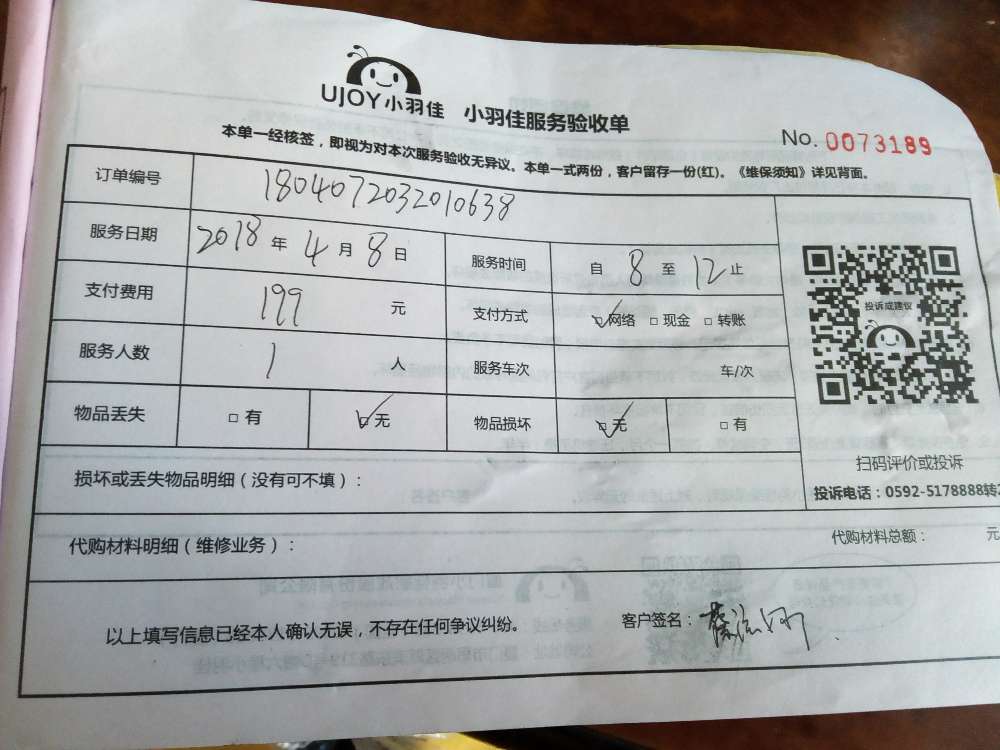 UJOY小羽佳 小羽佳服务验收单
No. 0073189
本单一经核签，即视为对本次服务验收无异议。本单一式两份，客户留存一份(红)。《维保须知》详见背面。
订单编号 1804072032010638
服务日期 2018年4月8日 服务时间 自8至12止
支付费用 199元 支付方式 网络 现金 转账
服务人数 1人 服务车次 车/次
物品丢失 有 无 物品损坏 无 有
投诉或建议
扫码评价或投诉
投诉电话：0592-5178888转
损坏或丢失物品明细（没有可不填）：
代购材料明细（维修业务）： 代购材料总额： 元
以上填写信息已经本人确认无误，不存在任何争议纠纷。 客户签名：